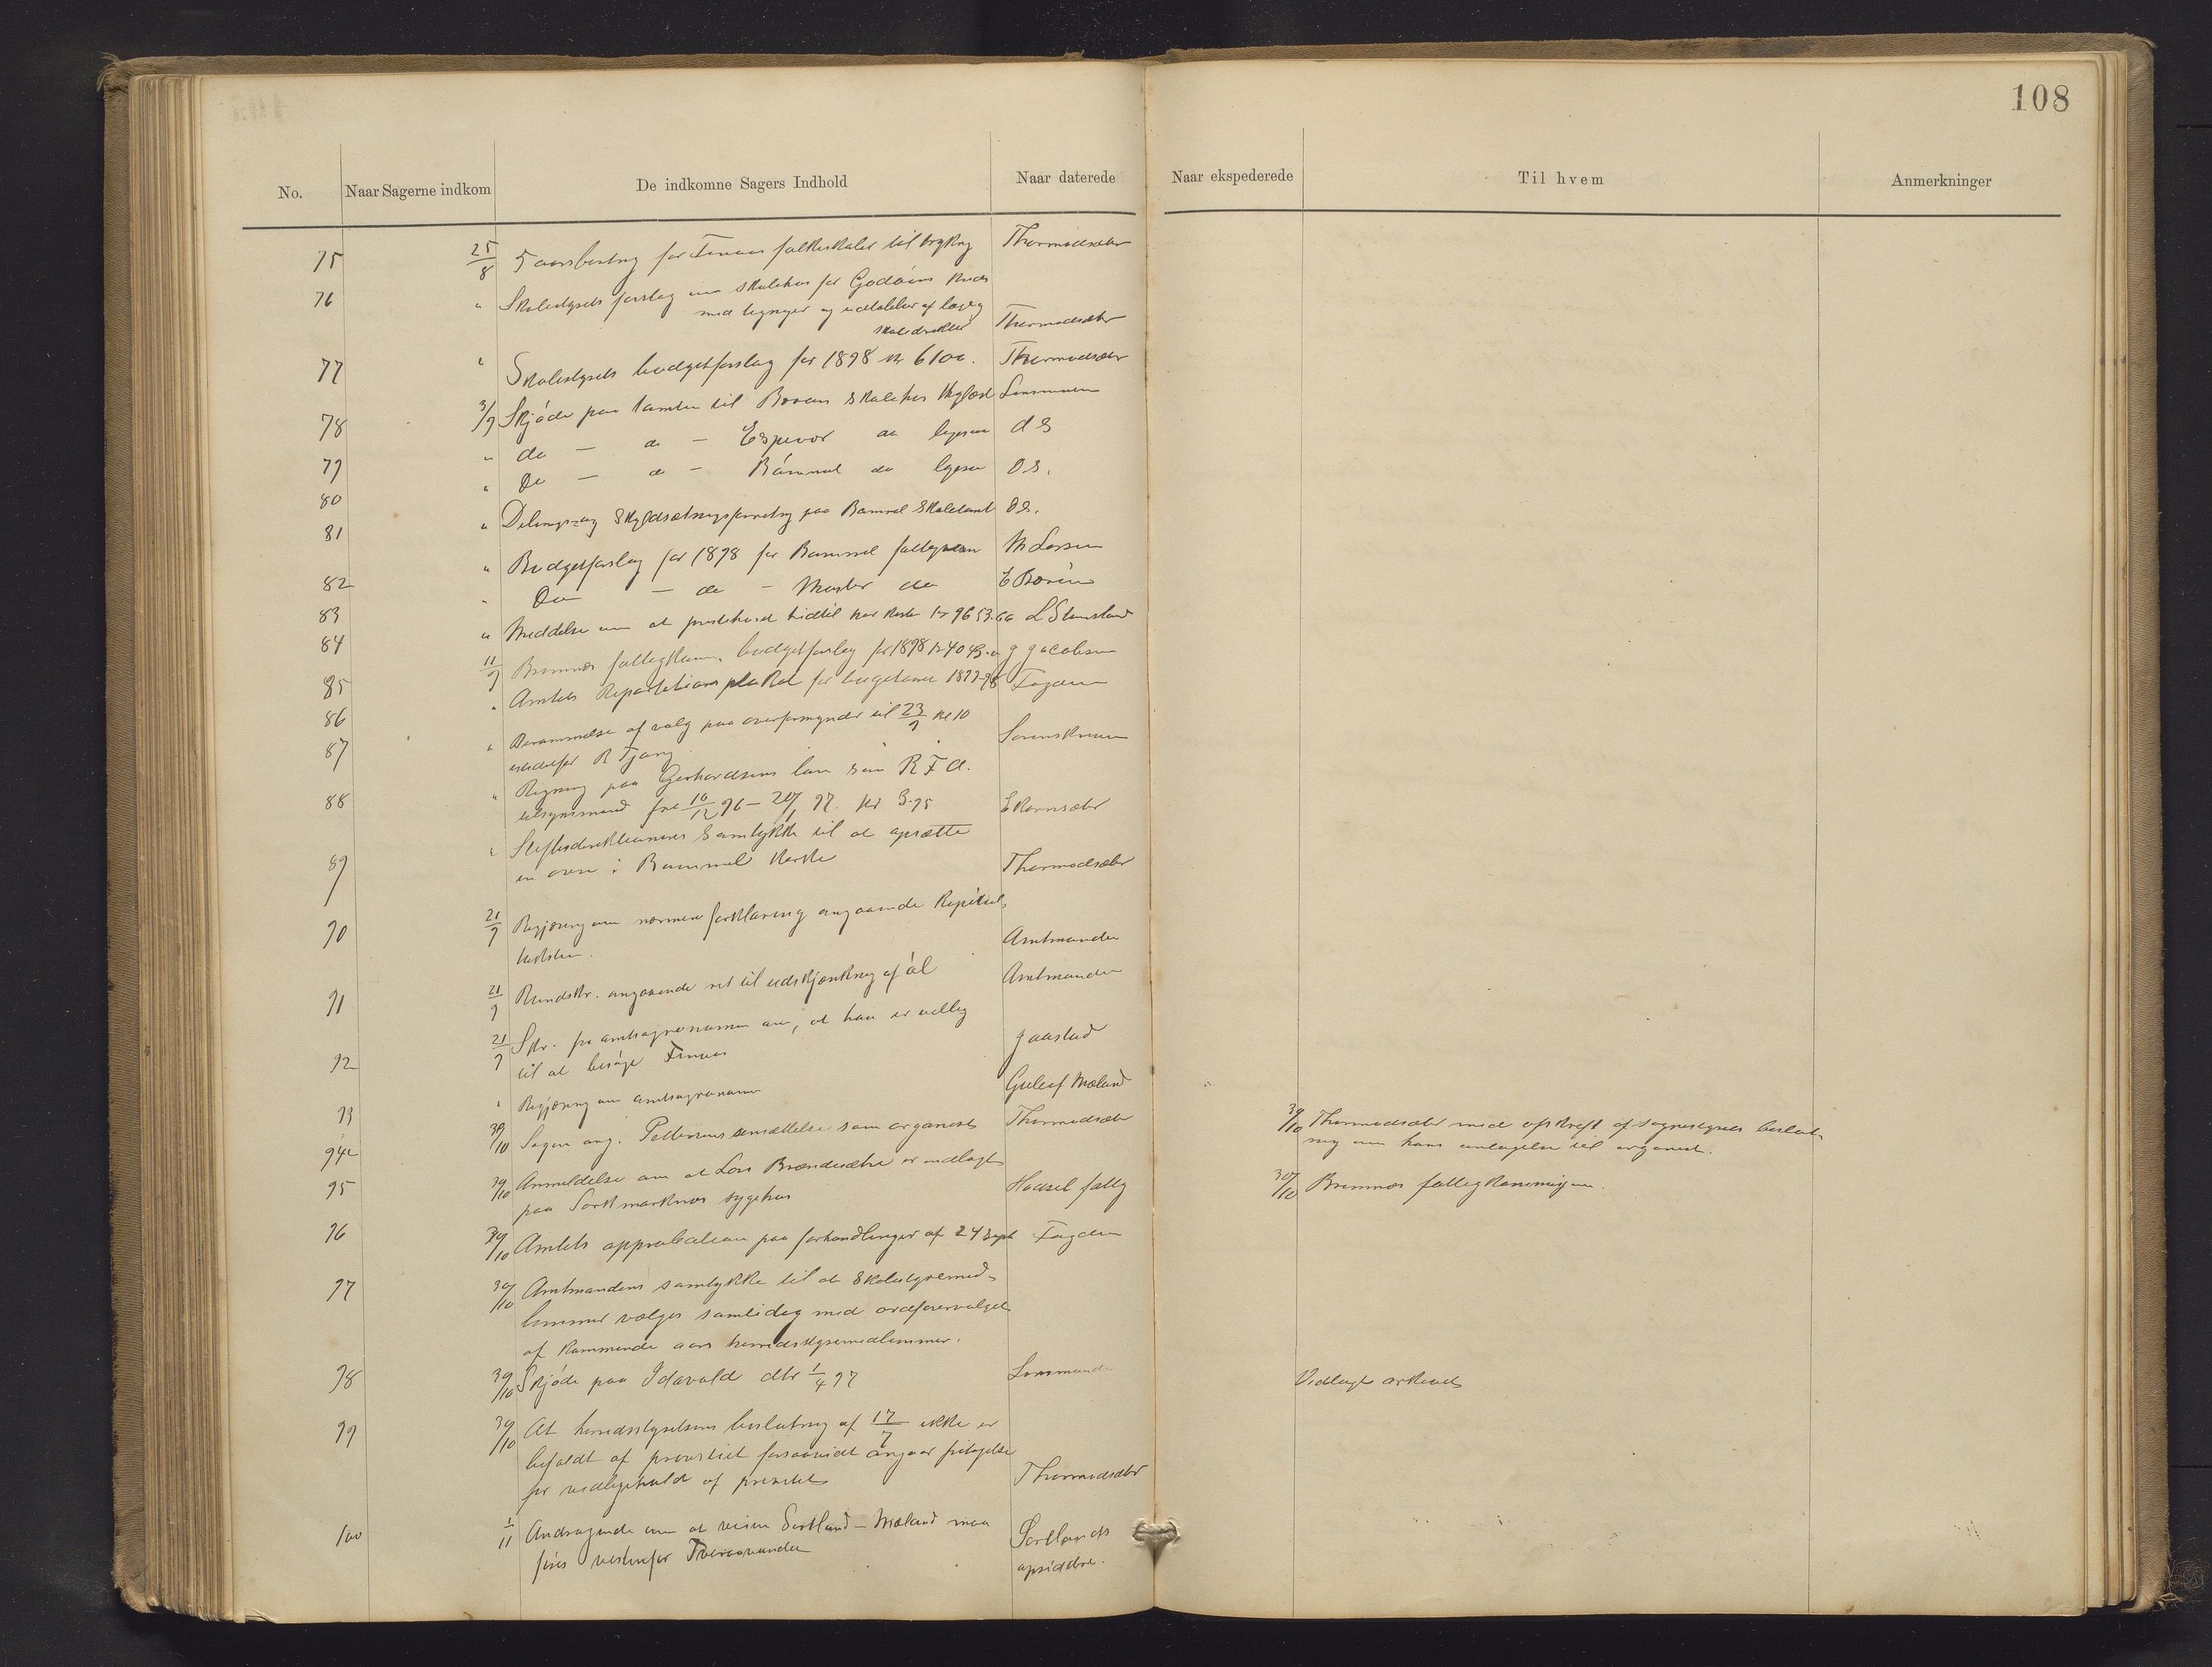 108
No. Naar Sagerne indkom De indkomne Sagers Indhold Naar daterede Naar ekspederede Til hvem Anmerkninger
75 25/8 5 aarsberetng for Finaas folkeskoler til trykng Thormodsæter
76 " Skolestyrets forslag om skolehus for Godøens kreds
med tegnger og udtalelser af læge og
skoledirektør Thormodsæter
77 " Skolestyrets budgetforslag for 1898 kr 6100. Thormodsæter
78 3/9 Skjøde paa tomten til skolehus tinglæst Lensmanen
79 " do — do — Espevær do do ds
80 " Do — do — Bømmel do ds.
81 " Delings og Skyldsætningsforretng paa Bømmel Skoletomt Ds.
82 " Budgetforslag for 1898 for Bømmel fattigvæsen M Larsen
83 " Do — do — Moster do
84 " Meddelse om at prestehuset hidtil har kostet kr 9653.60
85 11/9 Bremnæs fattigkom. budgetforslag for 1898 kr 4043. J Jacobsen
86 " Amtets Repartitions plakat for budgetaaret 1897-98 Fogden
87 " Berammelse af valg paa overformynder til 23/9 kl 10
istedenfor R Tjong Sorenskriveren
88 " Regning paa Gerhardsens løn som R F d.
tilsynsmand fra 10/12 96 — 20/1 97. kr 3.75
89 " Stiftsdirektionens Samtykke til at opsætte
en ovn i Bømmel kirke Thormodsæter
90 21/9 Begjæring om nærmere forklaring angaaende Kapitel
taksten. Amtmanden
91 21/9 Rundskr. angaaende ret til udskjænkning af øl Amtmanden
92 21/9 Skr. fra amtsagronomen om, at han er villig
til at besøge Finaas Gaastad
93 " Begjæring om amtsagronomen Mæland
94 30/10 Sagen ang. Pettersens ansættelse som organist Thormodsæter 30/10 Thormodsæter med afskrift af sognestyrets beslut-
ng om hans antagelse til organist.
95 30/10 Anmeldelse om at Lars Brændesætre er indlagt
paa Stokmarknes sygehus Hadsel fattig 30/10 Bremnæs fattigkommisjon.
96 30/10 Amtets approbation paa forhandlinger af 24 Sept Fogden
97 30/10 Amtmandens samtykke til at Skolestyremed-
lemmer vælges samtidig med ordførervalget
af kommende aars herredsstyremedlemmer.
98 30/10 Skjøde paa Idavold dtr 1/4 97 Lensmanden Vedlagt arkivet
99 30/10 At herredsstyrelsens beslutng af 17/7 ikke er
befaldt af provstiet forsaavidt angaar fritagelse
for vedligehold af Thormodsæter
100 1/11 Andragende om at veien Sortland — Mæland maa
føres vestenfor Tveravandet Sortlands
opsiddere.